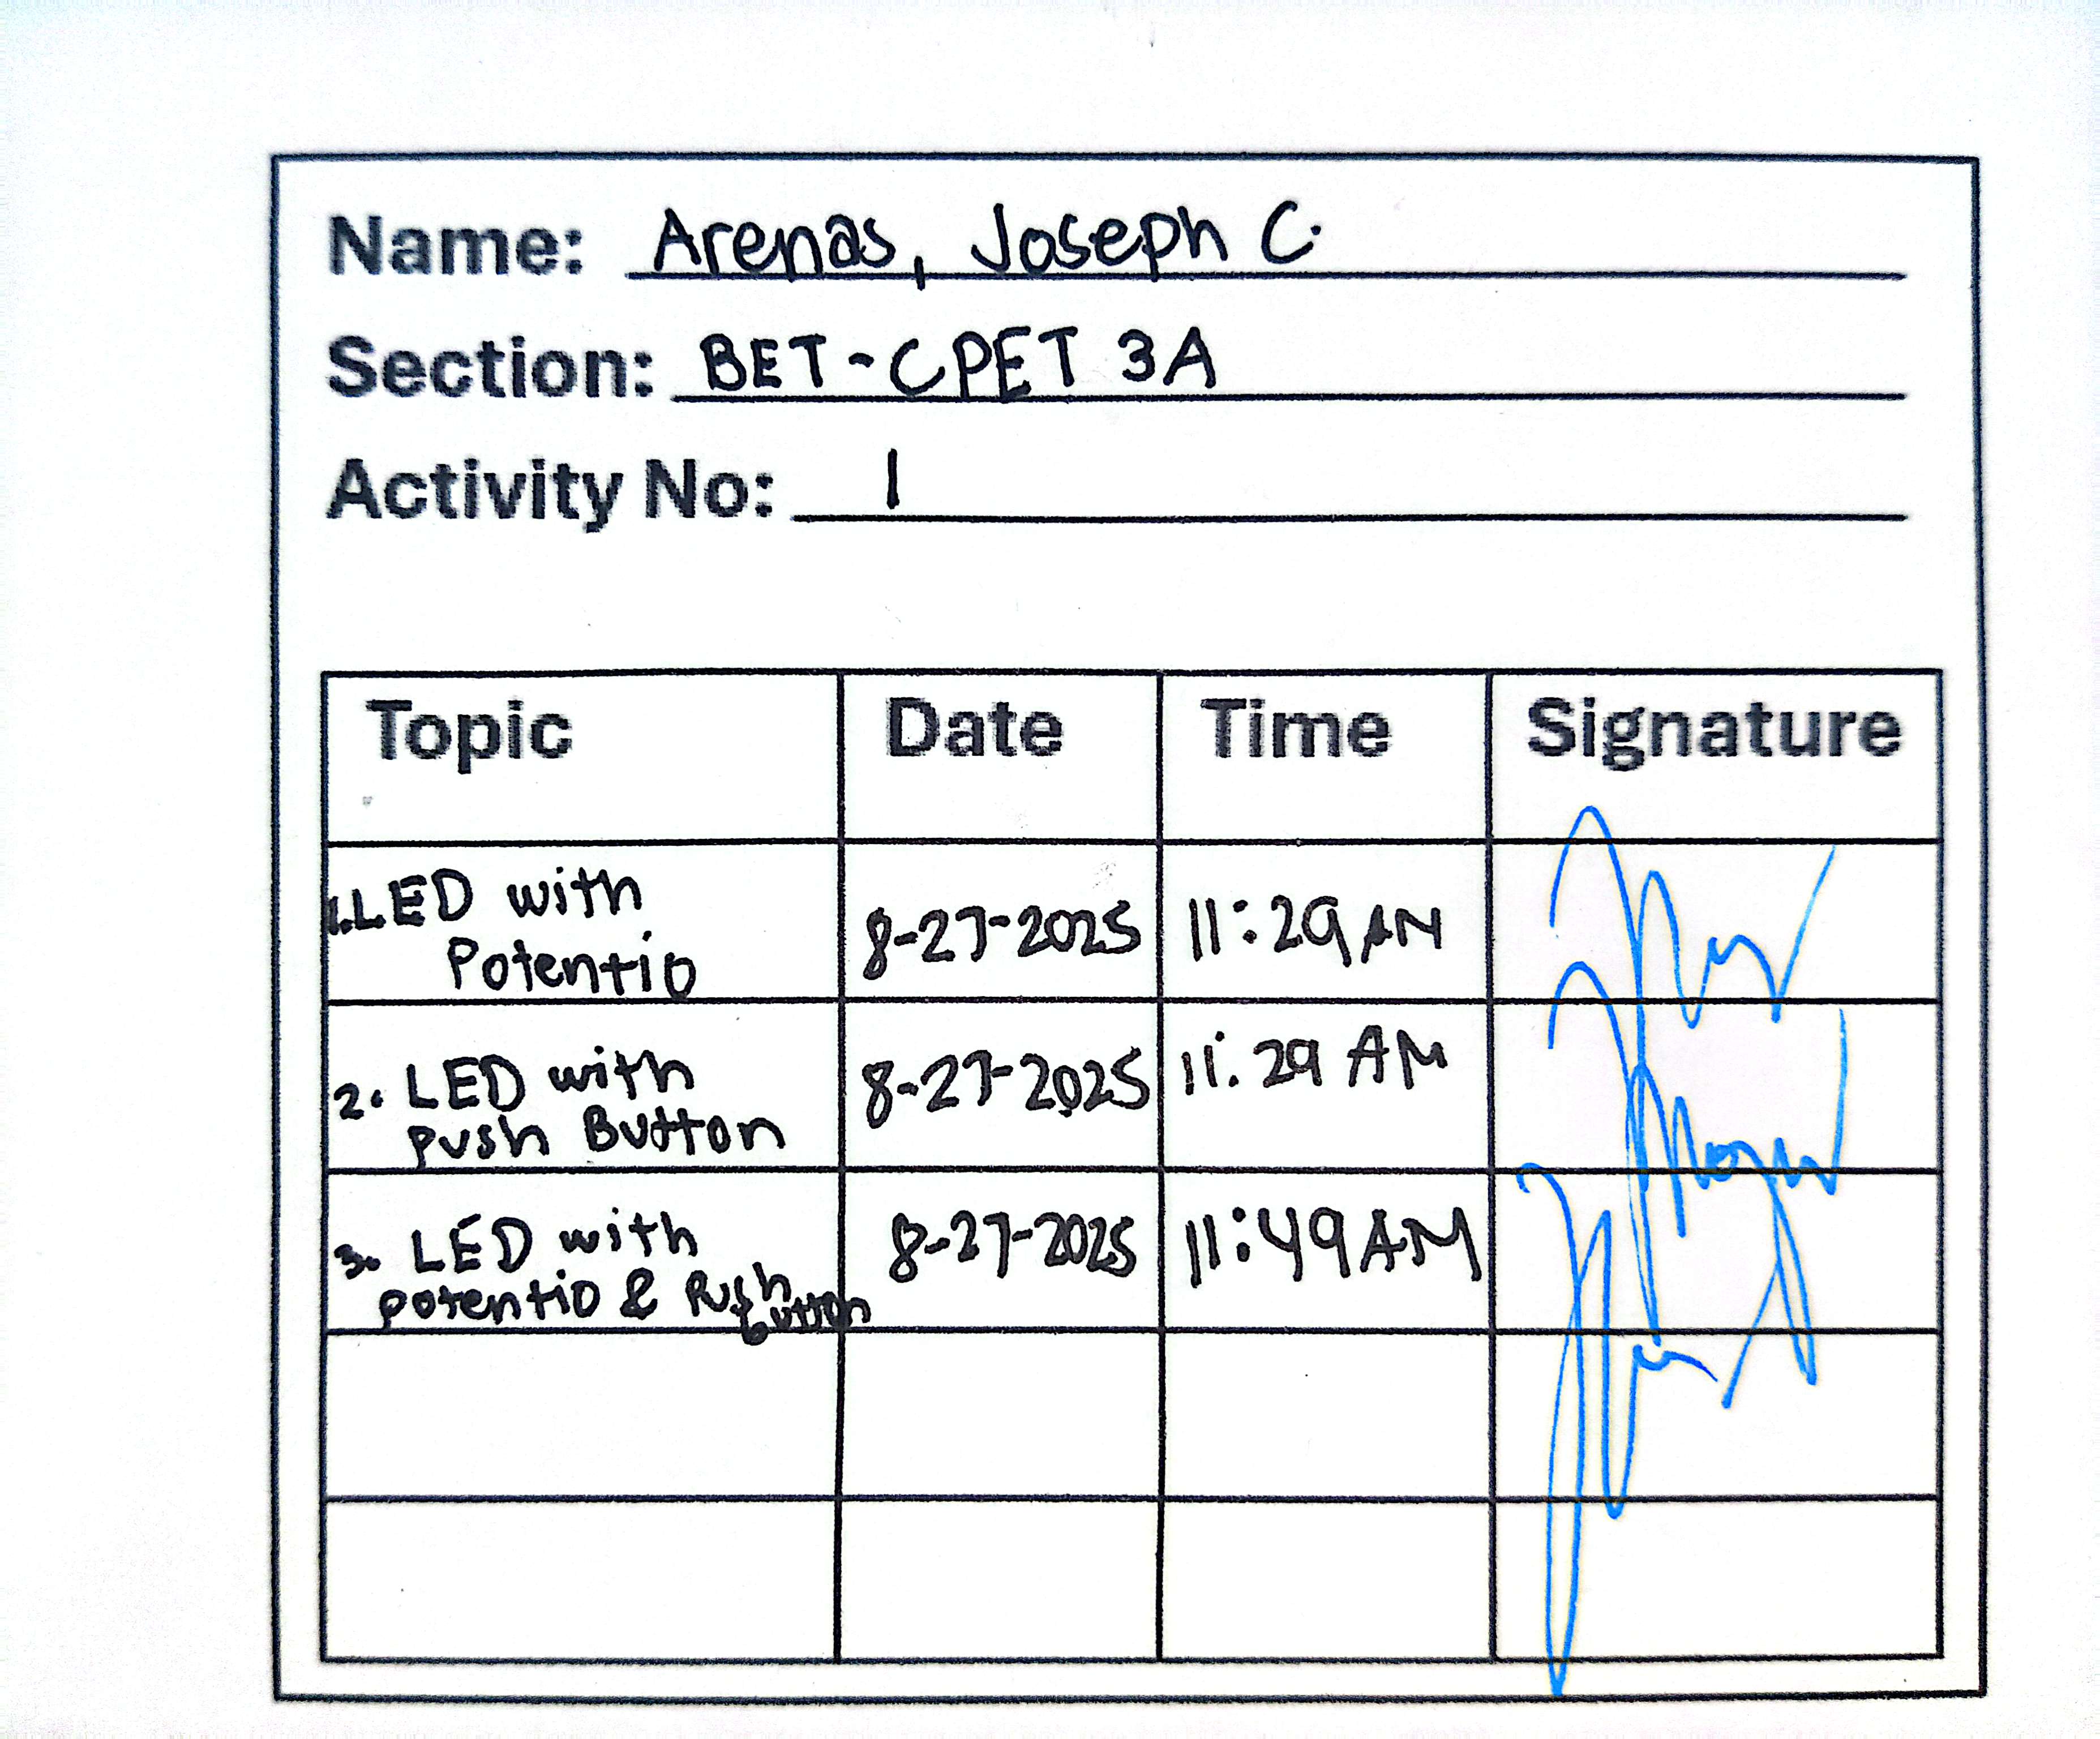 Name: Arenas, Joseph C.
Section: BET-CPET 3A
Activity No: 1
Topic Date Time Signature
1. LED with
Potentio 8-27-2025 11:29 AM
2. LED with
push Button 8-27-2025 11:29 AM
3. LED with
potentio & Push
button 8-27-2025 11:49 AM